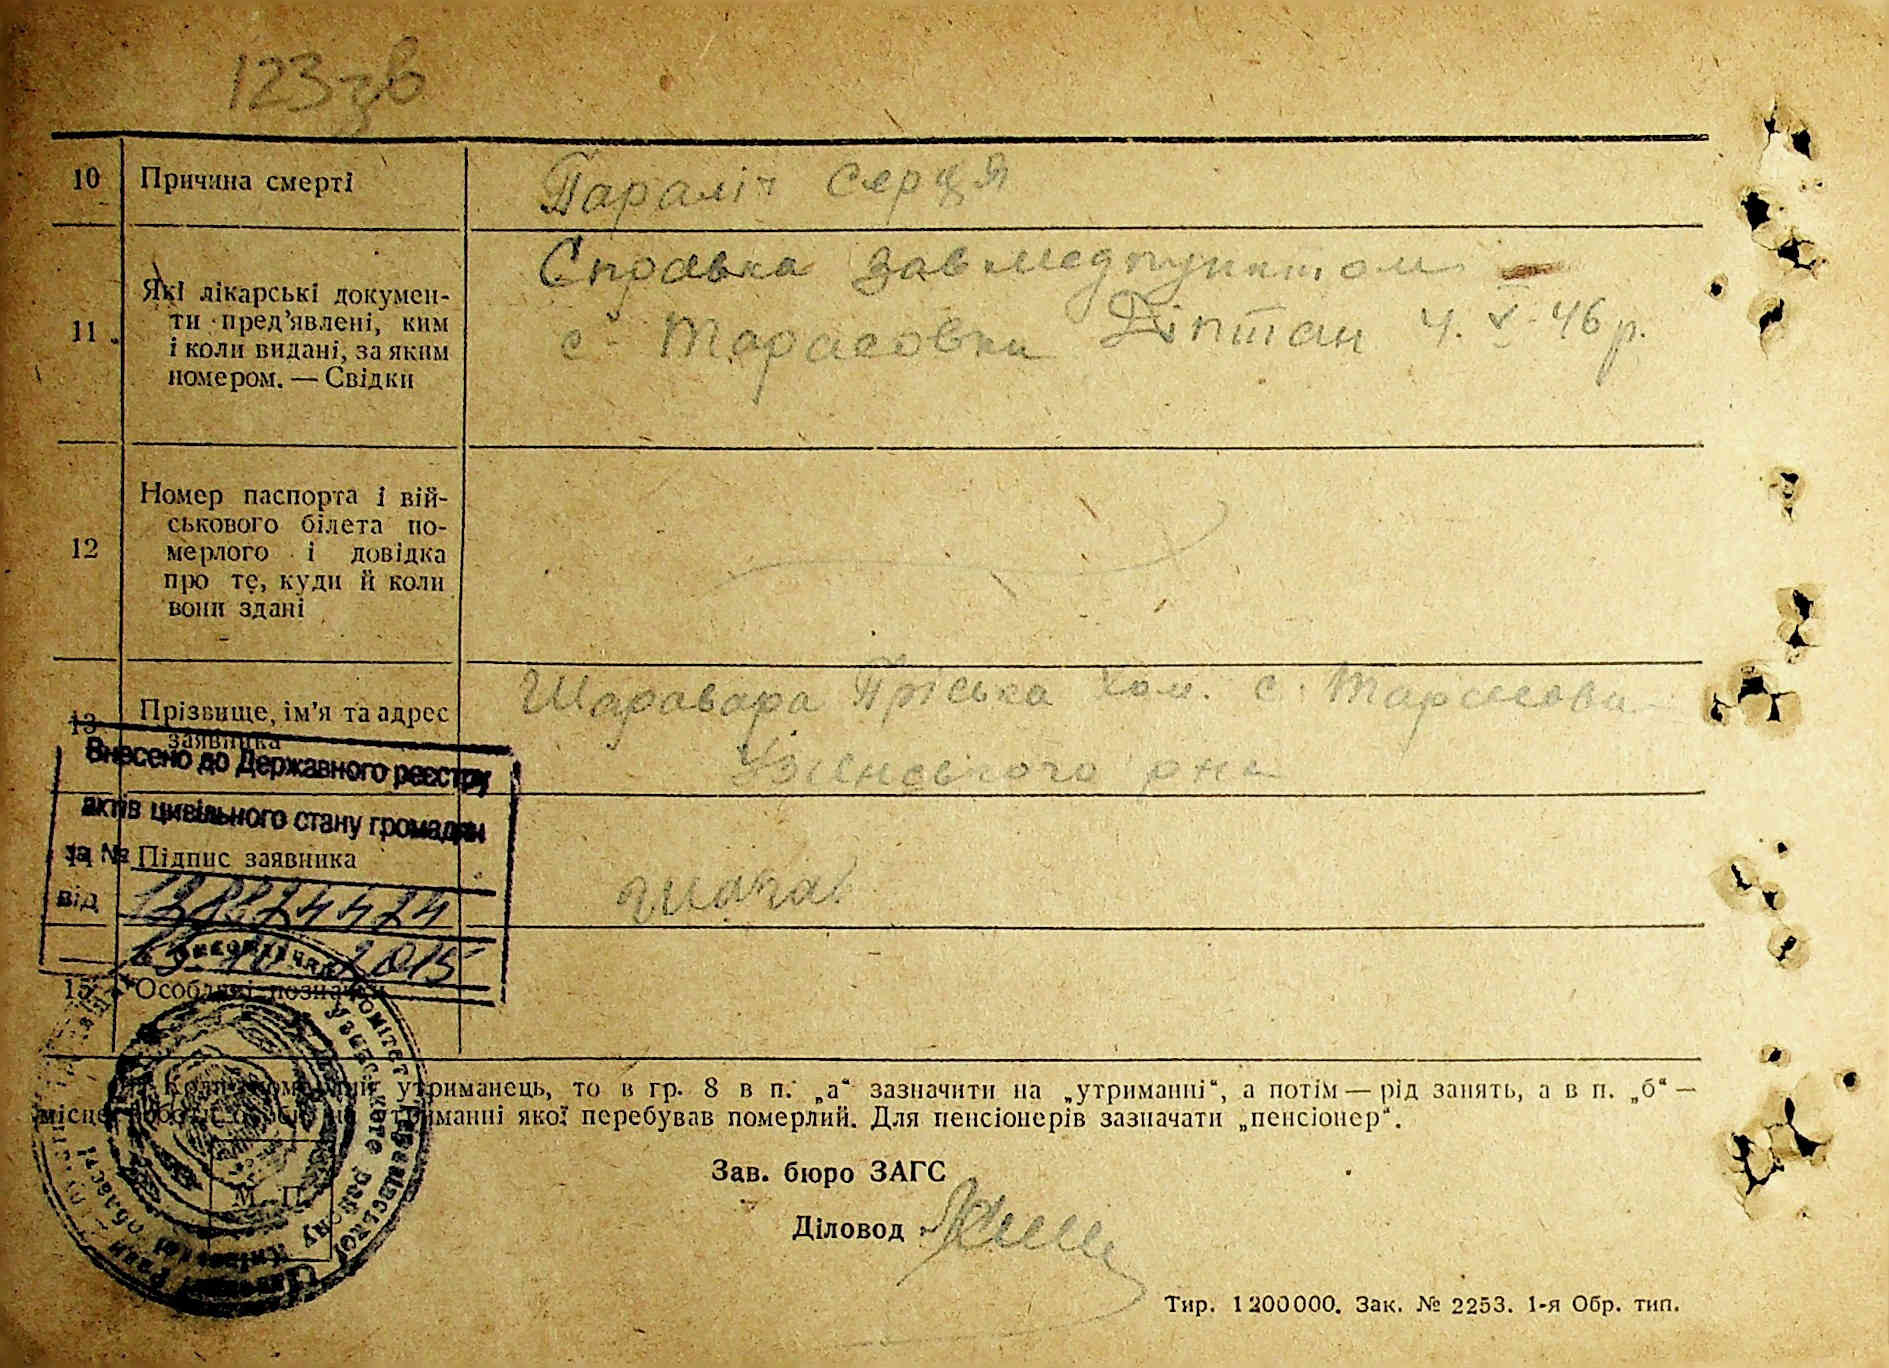 123зв
10 Причина смерті
Параліч серця
11 Які лікарські докумен-
ти пред’явлені, ким
і коли видані, за яким
номером. — Свідки
Справка зав медпунктом
с. Тарасовки Діптан 4. V. 46 р.
12 Номер паспорта і вій-
ськового білета по-
мерлого і довідка
про те, куди й коли
вони здані
13 Прізвище, ім’я та адрес
заявника
Шаравара Пріська Хом. с. Тарасовка
Узинського р-на
Внесено до Державного реєстру
актів цивільного стану громадян
за №
від
2015
14 Підпис заявника
15 Особливі позначки
утриманець, то в гр. 8 в п. „а“ зазначити на „утриманні“, а потім — рід занять, а в п. „б“ —
місце роботи утриманні якої перебував померлий. Для пенсіонерів зазначати „пенсіонер“.
Зав. бюро ЗАГС
М. П.
Діловод
Тир. 1200000. Зак. № 2253. 1-я Обр. тип.